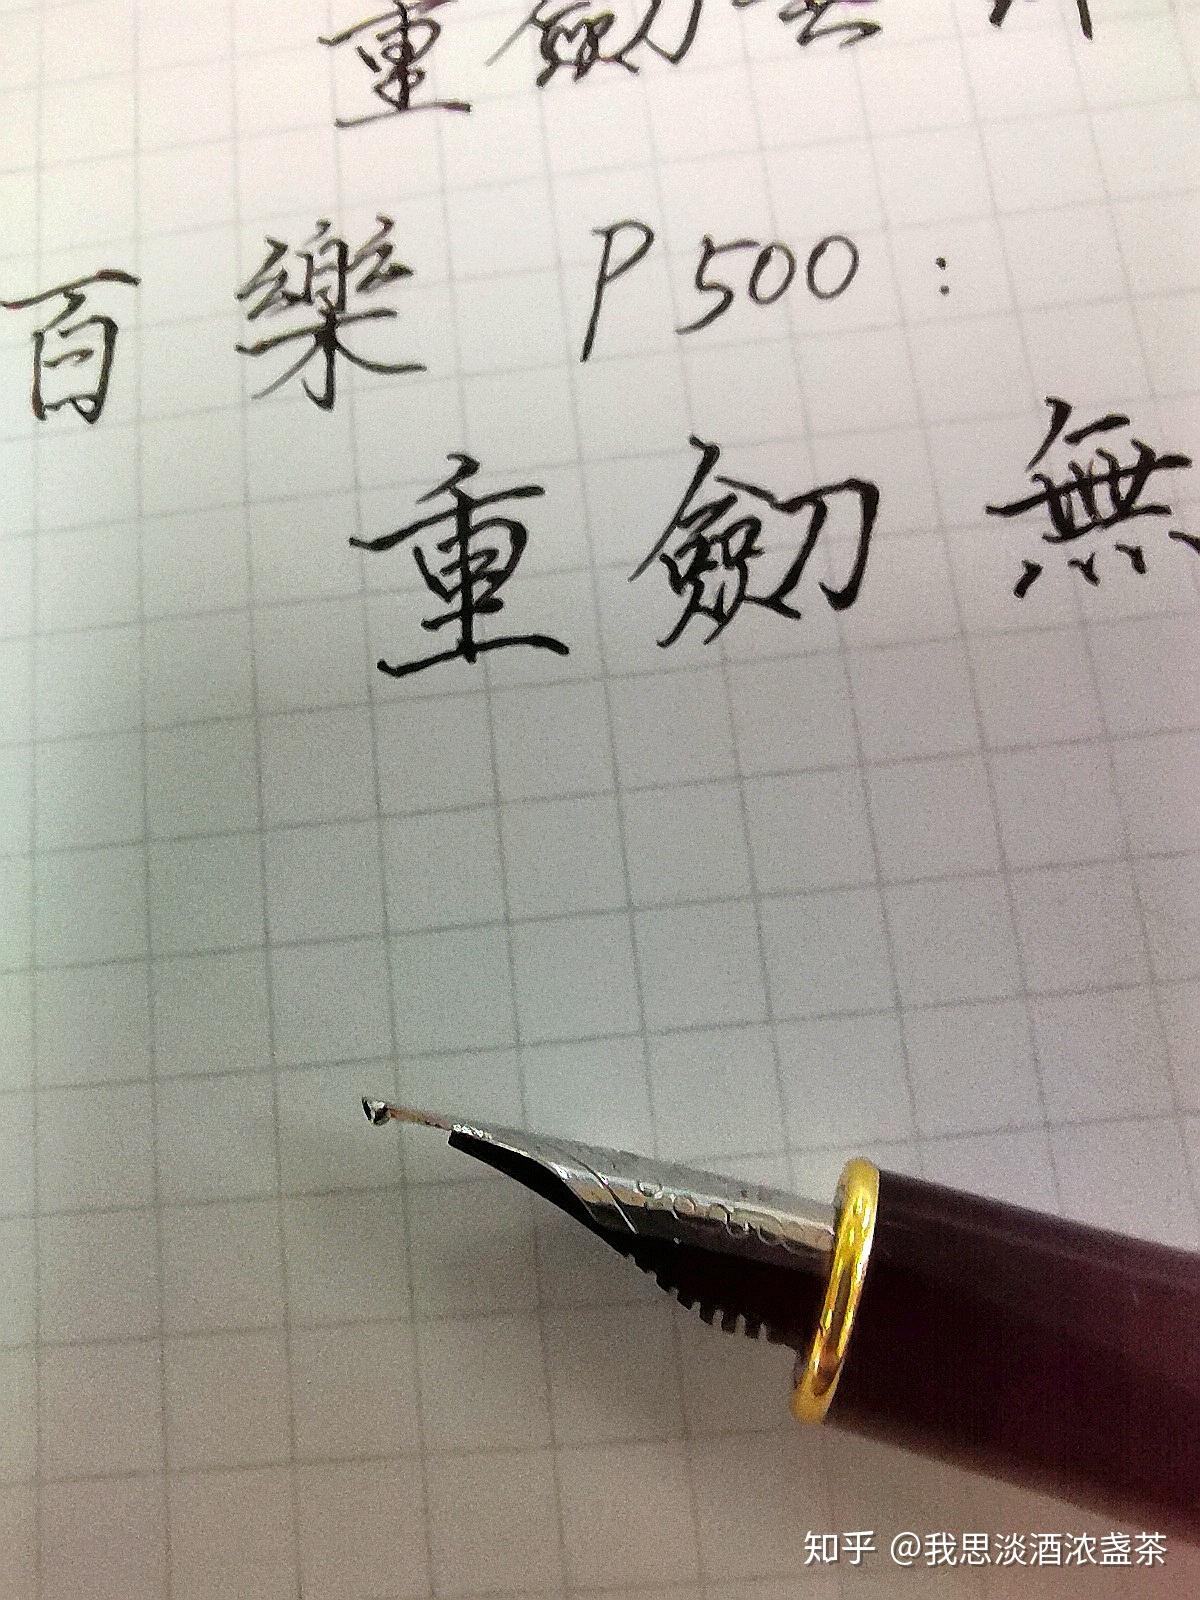 重劒無
百樂 P500:
重劒無
知乎 @我思淡酒浓盏茶